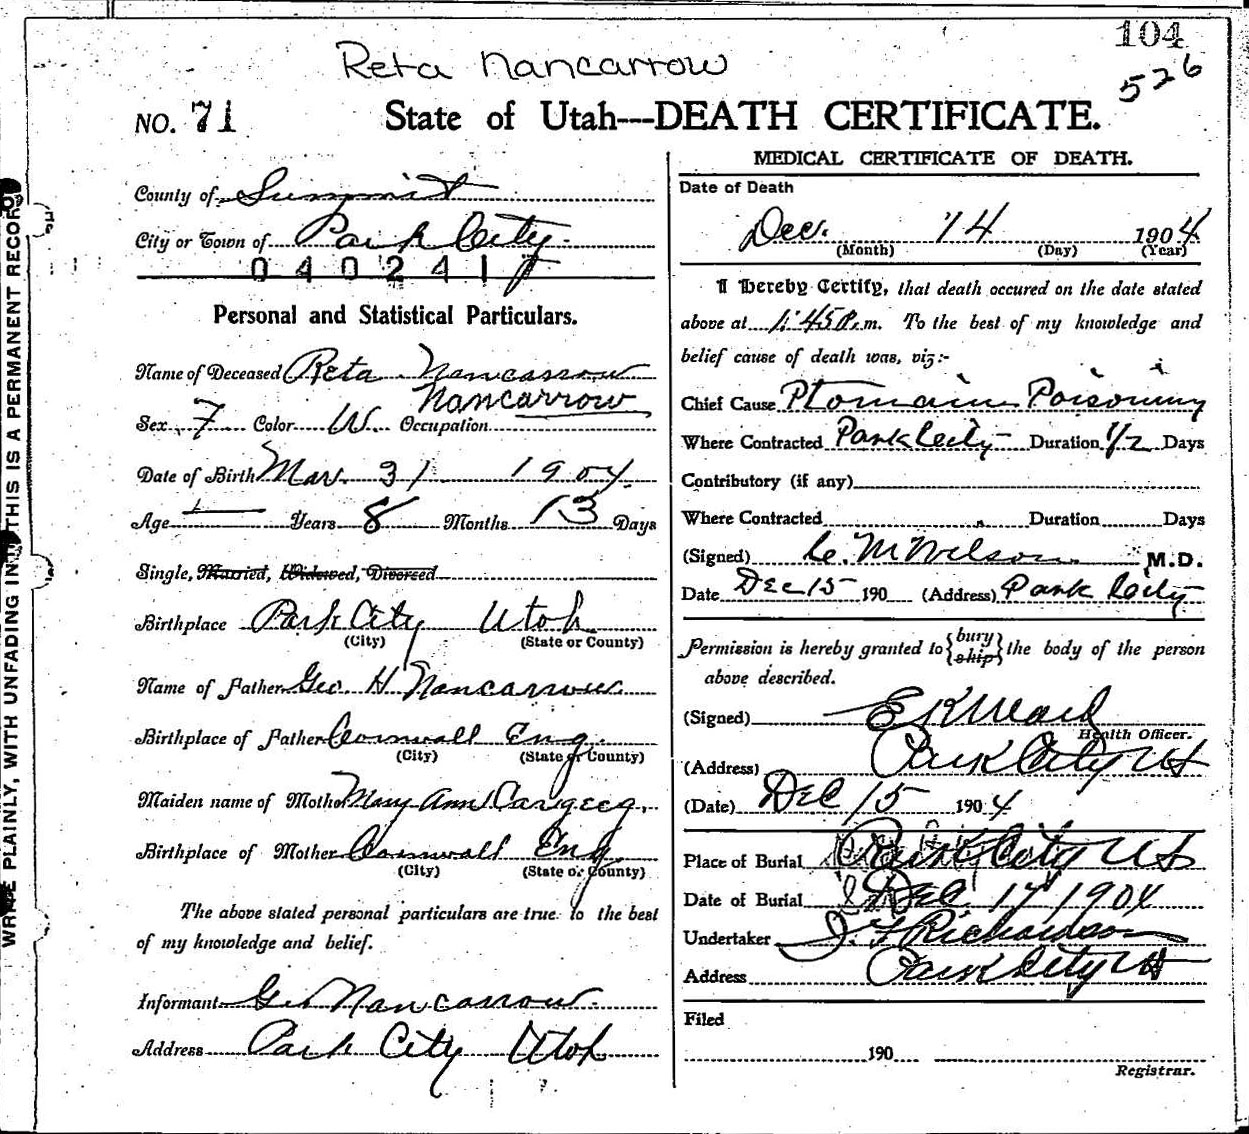 104
526
Reta Nancarrow
NO. 71 State of Utah---DEATH CERTIFICATE.
County of Summit
City or Town of Park City
0 4 0 2 4 1
Personal and Statistical Particulars.
Name of Deceased Reta Nancarrow
Nancarrow
Sex F Color W. Occupation
Date of Birth Mar. 31 1904.
Age — Years 8 Months 13 Days
Single, Married, Widowed, Divorced
Birthplace Park City Utah
(City) (State or County)
Name of Father Geo. H Nancarrow
Birthplace of Father Cornwall Eng.
(City) (State or County)
Maiden name of Mother Mary Ann
Birthplace of Mother Cornwall Eng
(City) (State or County)
The above stated personal particulars are true to the best
of my knowledge and belief.
Informant Geo Nancarrow.
Address Park City Utah
MEDICAL CERTIFICATE OF DEATH.
Date of Death
Dec. 14 1904
(Month) (Day) (Year)
I Hereby Certify, that death occured on the date stated
above at 1:45 P.m. To the best of my knowledge and
belief cause of death was, viz:-
Chief Cause Ptomain Poisoning
Where Contracted Park City Duration 1/2 Days
Contributory (if any)
Where Contracted Duration Days
(Signed) C. M Wilson M.D.
Date Dec 15 190 (Address) Park City
Permission is hereby granted to {bury ship} the body of the person
above described.
(Signed) E K Ward
Health Officer.
(Address) Park City Ut
(Date) Dec 15 1904
Place of Burial Park City Ut
Date of Burial Dec 17 1904
Undertaker J. F Richardson
Address Park City Ut
Filed
190
Registrar.
WRITE PLAINLY, WITH UNFADING INK THIS IS A PERMANENT RECORD